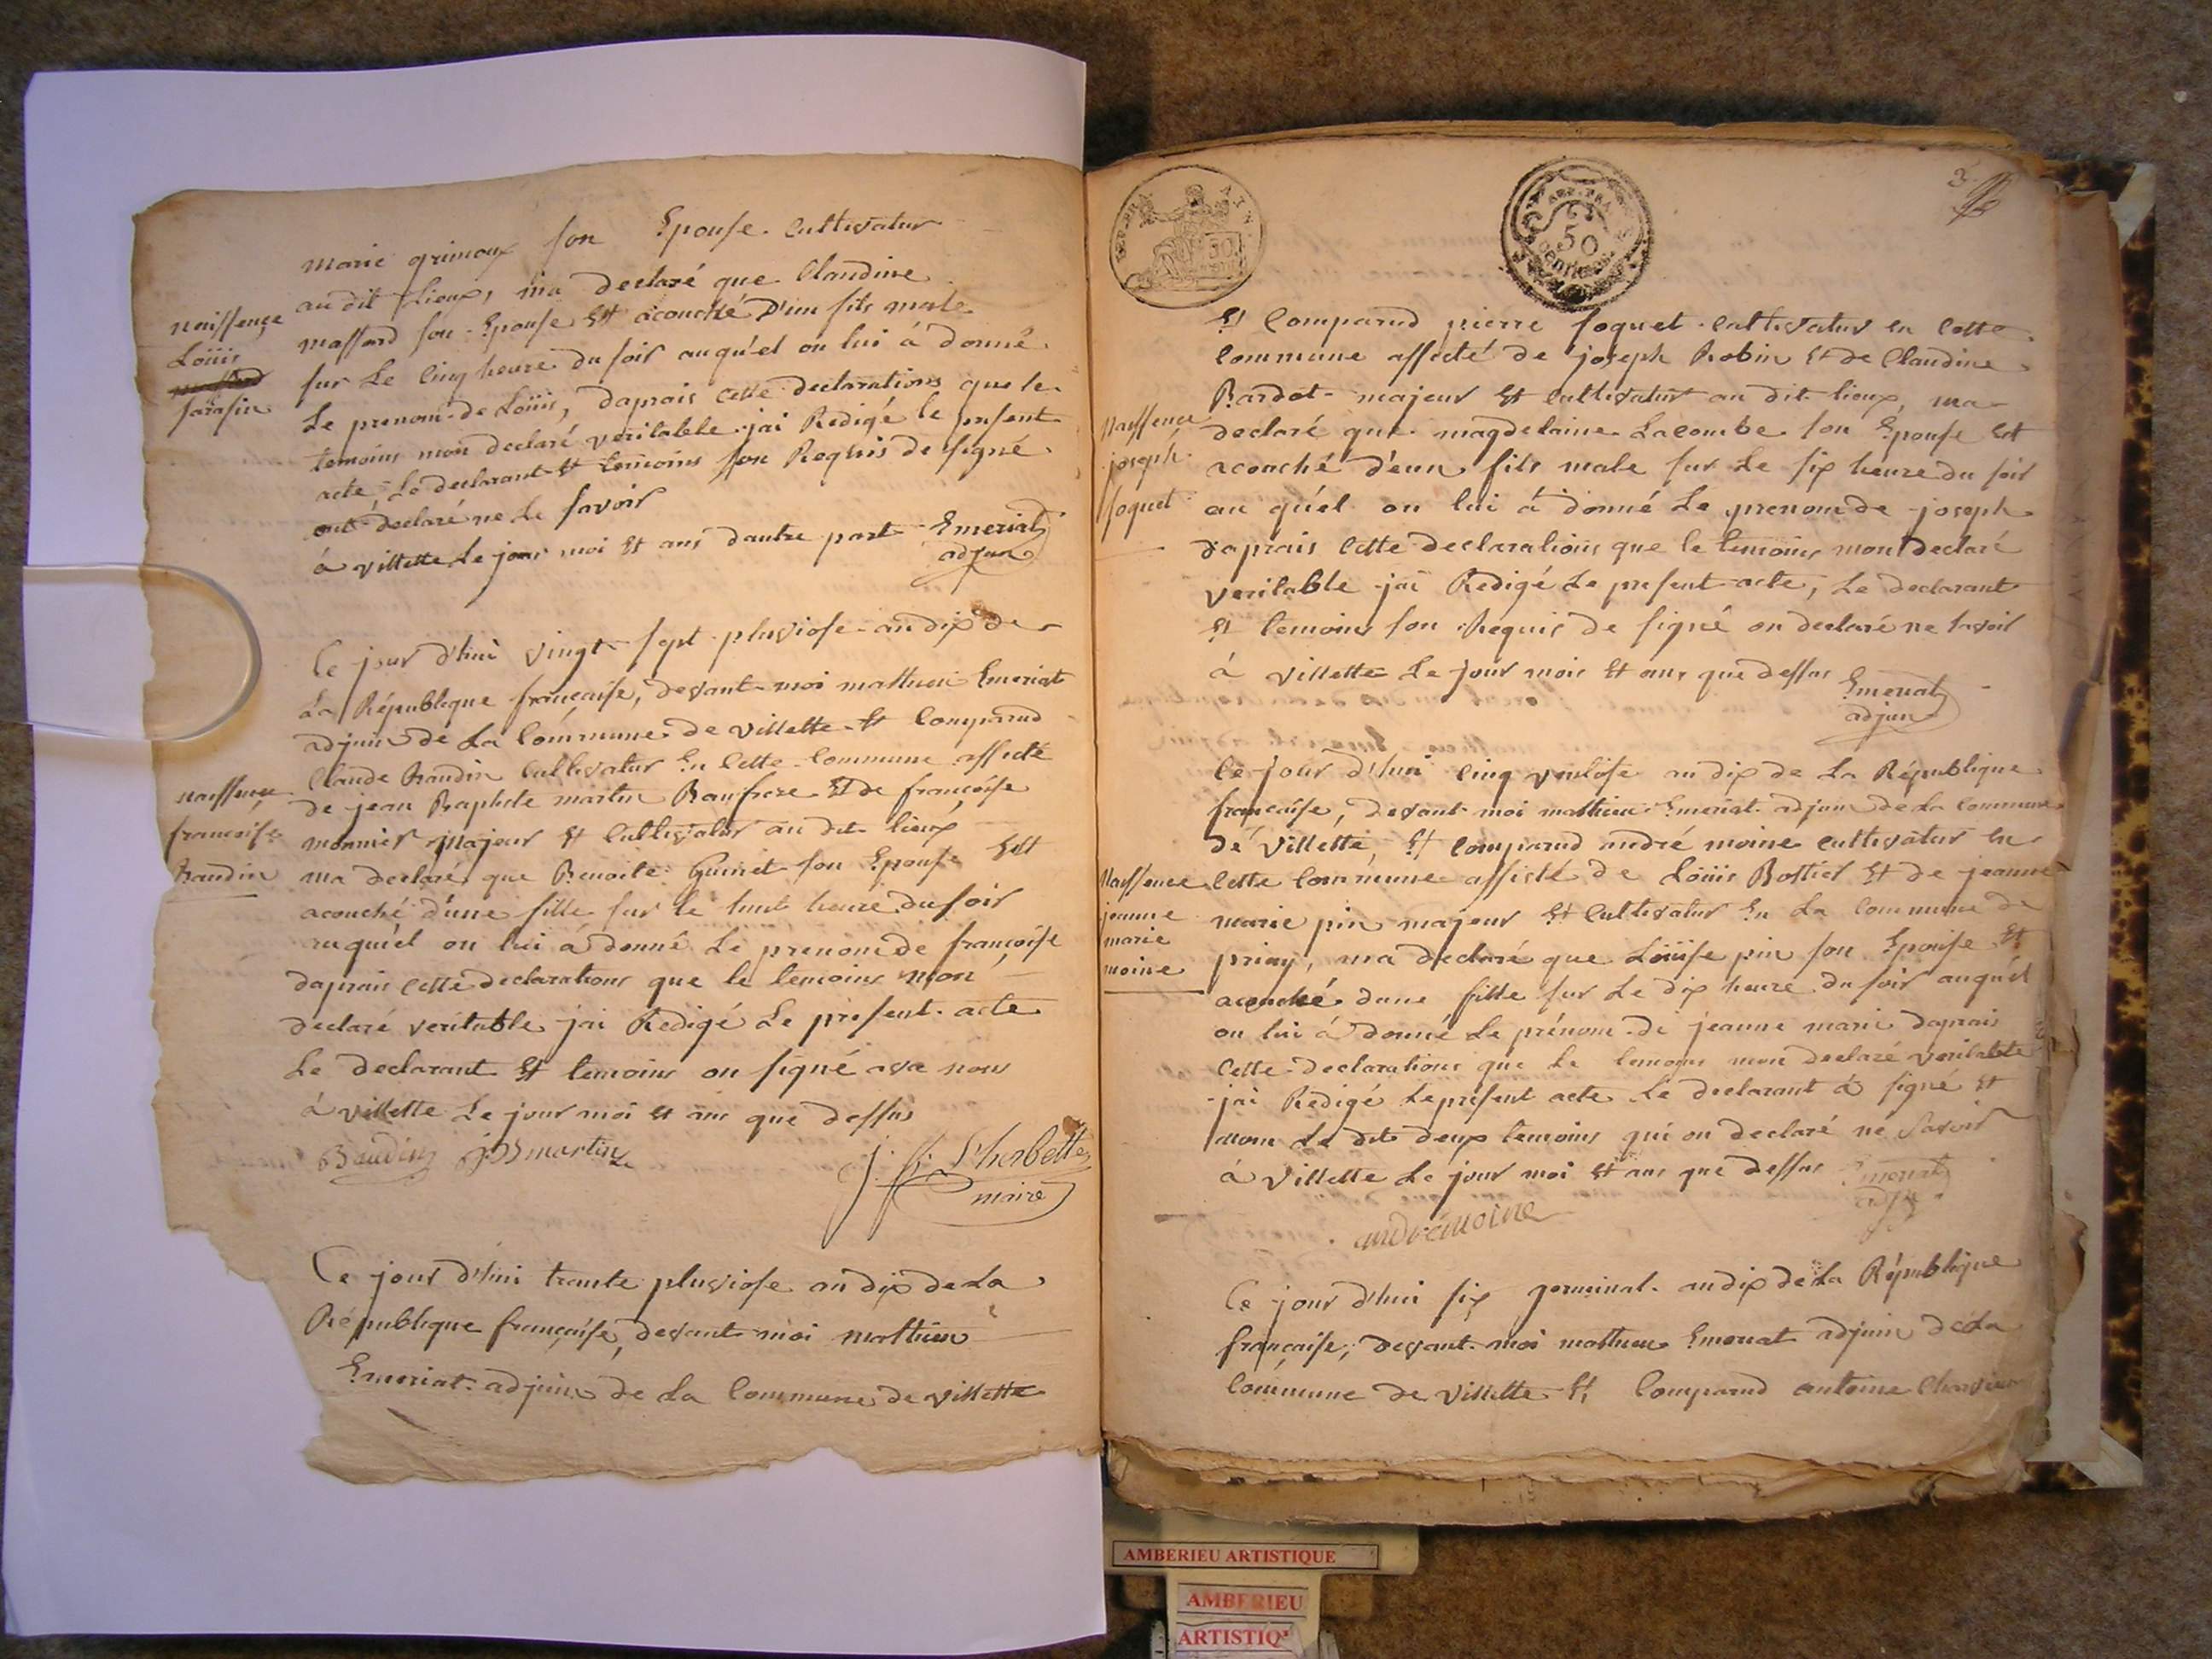 marie grimoux son Epouse cultivatur
au dit Lieux, ma declaré que Claudine
naissence
Loüis
sarasin
massard son Epouse Est acouché D'un fils male
sur Le Cinq heure du soir auqu'el on lui à donné
Le prenom de Loüis, daprais cette declarations que le
temoins mon declaré veritable jai Redigé le present
acte, Le declarant Et temoins son Requis de signé
ont declaré ne Le savoir
à villette Le jour moi Et ans dautre part Emeriat
adjun
Ce jour d'hui vingt sept pluviose an dix de
La République française, devant moi mathieu Emeriat
adjuin de La Commune de villette Est Comparud
Claude Baudin Cultivatur En Cette Commune assisté
naissence
françoise
Baudin
de jean Baptiste martin Baufrere Et de françoise
monnier majeur Et Cultivatur au dit lieux
ma declaré que Benoite Guinet son Epouse Est
acouché d'une fille sur le huit heure du soir
auqu'el on lui à donné Le prenom de françoise
daprais cette declarations que le temoins mon
declaré veritable jai Redigé Le present acte
Le declarant Et temoins on signé ave nous
à villette Le jour moi Et ans que dessus
Baudin JB martin
L'herbette
maire
Ce jour d'hui trante pluviose an dix de La
République française, devant moi mathieu
Emeriat adjuin de La Commune de villette
REP. FRA
50
50
Centimes
3
Et Comparud pierre foquet cultivatur en cette
Commune assisté de joseph Robin Et de Claudine
Bardot majeur Et cultivatur au dit lieux, ma
naissence
joseph
foquet
declaré que magdelaine Lacombe son Epouse Est
acouché d'eun fils male sur Le six heure du soir
au qu'el on lui à donné Le prenom de joseph
daprais cette declarations que le temoins mon declaré
veritable jai Redigé Le present acte, Le declarant
Et temoins son Requis de signé on declaré ne savoir
à villette Le jour mois Et ans que dessus Emeriat
adjun
Ce jour d'hui cinq ventôse an dix de La République
française, devant moi mathieu Emeriat adjun de La Commune
de villette, Est comparud andré moine cultivatur En
naissence
jeanne
marie
moine
Cette Commune assisté de Loüis Bottier Et de jeanne
marie pin majeur Et Cultivatur En La Commune de
priay, ma declaré que Loüise pin son Epouse Est
acouché dune fille sur Le dix heure du soir auqu'el
on lui à donné Le prénom de jeanne marie daprais
Cette declarations que Le temoins mon declaré veritable
jai Redigé Le present acte Le declarant à signé Et
non Le dit deux temoins qui on declaré ne savoir
à villette Le jour moi Et ans que dessus Emeriat
adjun
andré moine
Ce jour d'hui six germinal an dix de La République
française, devant moi mathieu Emeriat adjuin de La
Commune de villette Est Comparud antoine
AMBERIEU ARTISTIQUE
AMBERIEU
ARTISTIQ